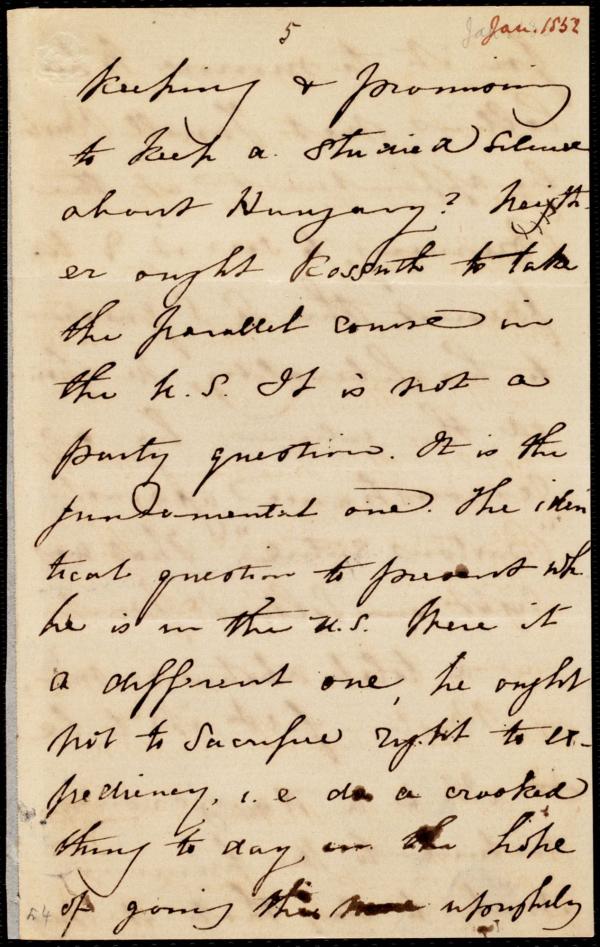 5
Jan. 1852
keeping & promising
to keep a studied silence
about Hungary? Neith-
er ought Kossuth to take
the parallel course in
the U.S. It is not a
party question. It is the
fundamental one. The iden
tical question to present wh
he is in the U.S. Were it
a different one, he ought
not to sacrifice right to ex-
pediency, i.e do a crooked
thing to day in the hope
of going the more uprightly
54